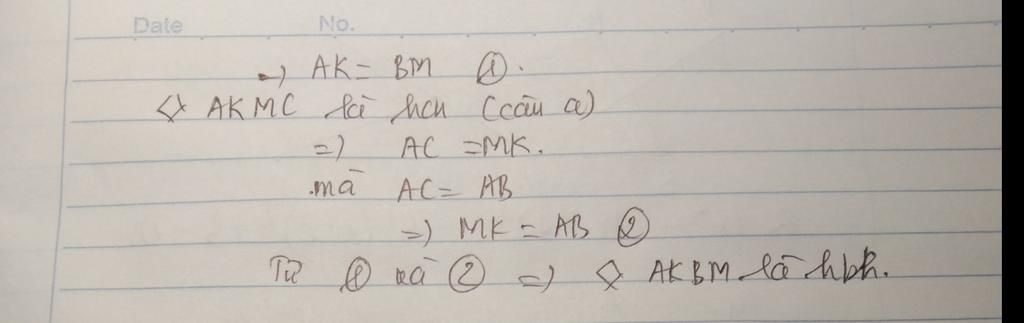 Date No.
=) AK = BM ①.
◇ AKMC là hcn (câu a)
=) AC = MK.
mà AC = AB
=) MK = AB ②
Từ ① và ② =) ◇ AKBM là hbh.